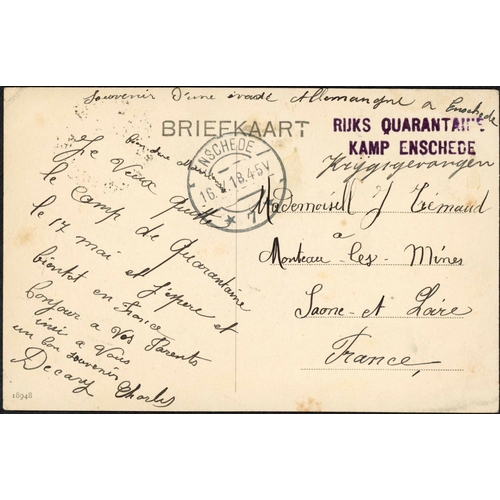 Souvenir d'une évadé Allemangne a Enschede
BRIEFKAART
RIJKS QUARANTAINE
KAMP ENSCHEDE
Krygsgevangen
ENSCHEDE
16. V. 18. 4-5V
* 7 *
bien chere
Je Veux quitte
le Camp de Quarantaine
le 17 mai et j'espere et
bientot en France
Bonjour a Vos Parents
a Vous
un bon souvenir
Decary Charles
Mademoisell J Témaud
a
Monteau les- Mines
Saone- et Loire
France
18948